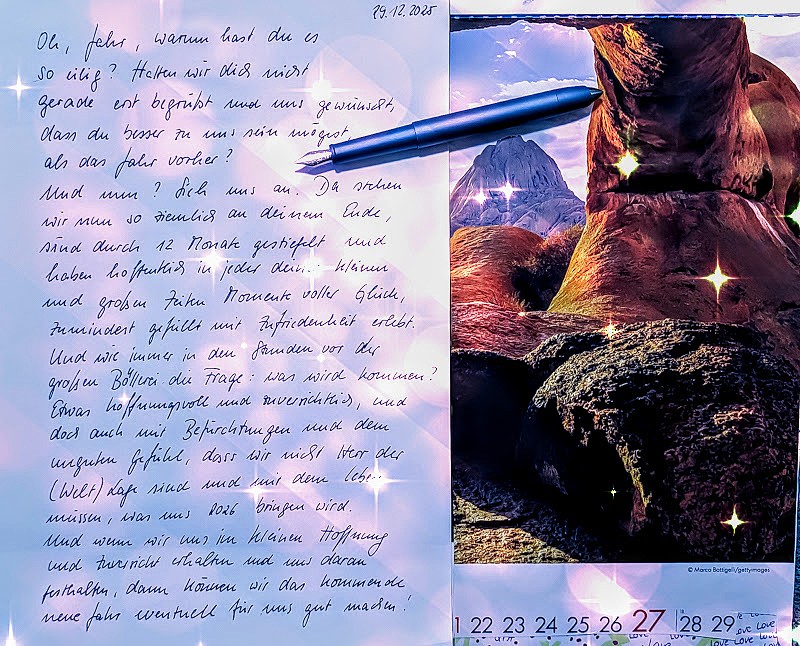 29.12.2025
Oh, Jahr, warum hast du es
so eilig? Hatten wir dich nicht
gerade erst begrüßt und uns gewünscht,
dass du besser zu uns sein mögest,
als das Jahr vorher?
Und nun? Sieh uns an. Da stehen
wir nun so ziemlich an deinem Ende,
sind durch 12 Monate gestiefelt und
haben hoffentlich in jeder deiner kleinen
und großen Zeiten Momente voller Glück,
zumindest gefüllt mit Zufriedenheit erlebt.
Und wie immer in den Stunden vor der
großen Böllerei die Frage: was wird kommen?
Etwas hoffnungsvoll und zuversichtlich, und
doch auch mit Befürchtungen und dem
unguten Gefühl, dass wir nicht Herr der
(Welt) Lage sind und mit dem leben
müssen, was uns 2026 bringen wird.
Und wenn wir uns im kleinen Hoffnung
und Zuversicht erhalten und uns daran
festhalten, dann können wir das kommende
neue Jahr eventuell für uns gut machen!
© Marco Bottigelli/gettyimages
1 22 23 24 25 26 27 28 29
LOVE LOVE
LOVE LOVE